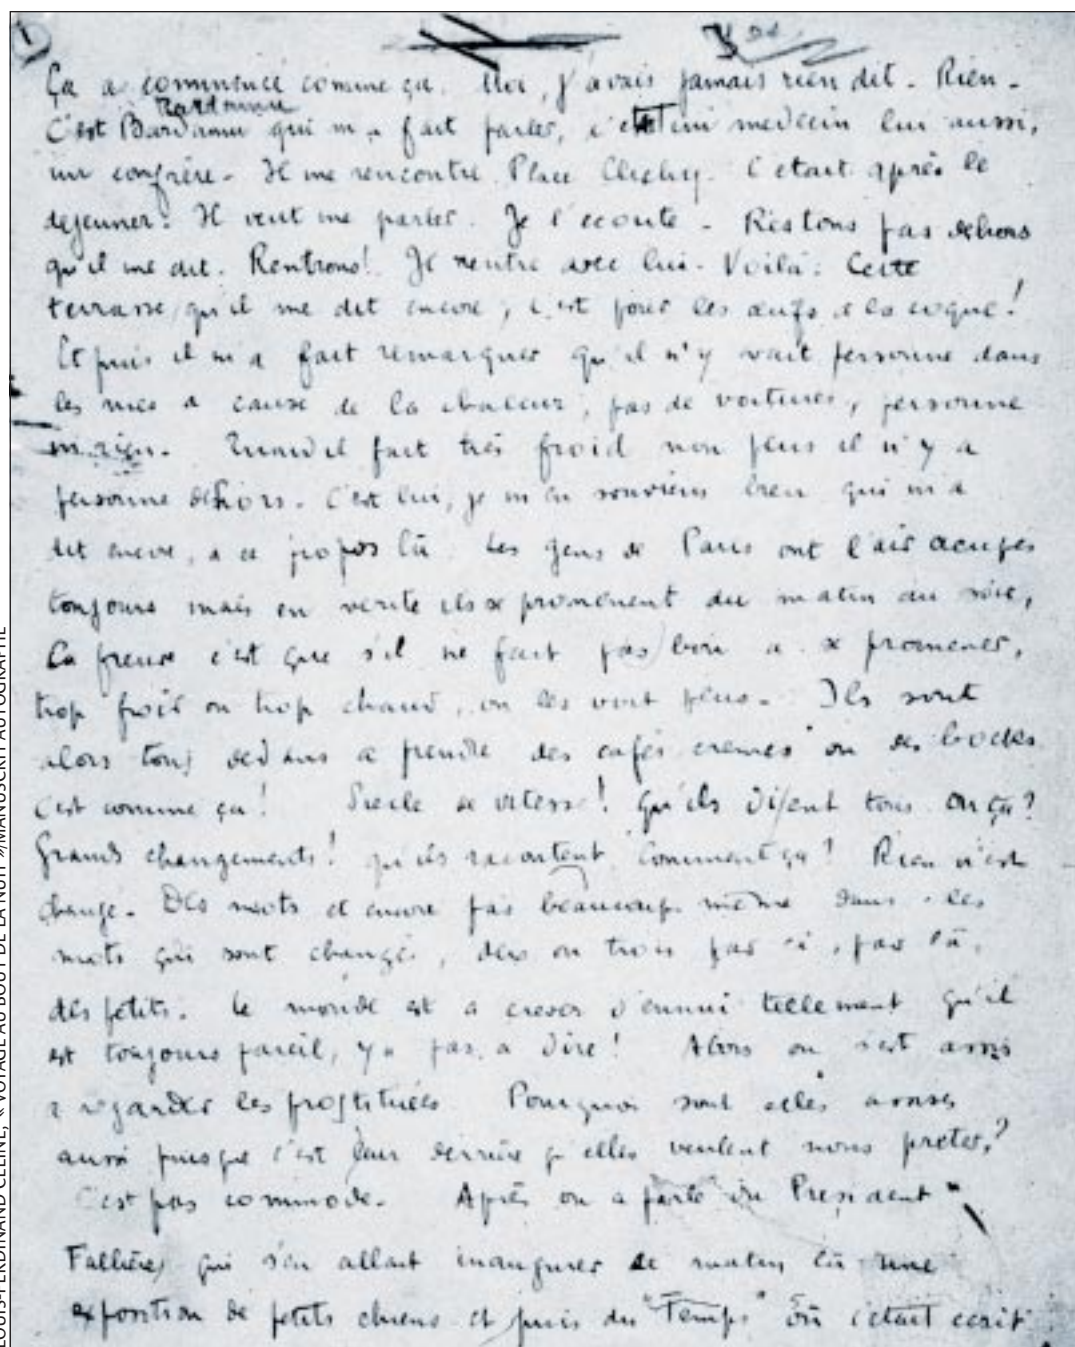 1
Ça a commencé comme ça. Moi, j'avais jamais rien dit - Rien -
Bardamu
C'est Bardamu qui m'a fait parler, c'était un medecin lui aussi,
un confrère - Il me rencontre Place Clichy - C'etait après le
dejeuner. Il veut me parler. Je l'ecoute - Restons pas dehors
qu'il me dit. Rentrons! Je rentre avec lui - Voilà : Cette
terrasse, qu'il me dit encore, c'est pour les œufs a la coque!
Et puis il m'a fait remarquer qu'il n'y avait personne dans
les rues a cause de la chaleur, pas de voitures, personne
ni rien. Quand il fait très froid non plus il n'y a
personne dehors. C'est lui, je m'en souviens bien qui m'a
dit encore, a ce propos là Les gens de Paris ont l'air occupés
toujours mais en verite ils se promenent du matin au soir,
La preuve c'est que s'il ne fait pas bon a se promener,
trop froid ou trop chaud, on les voit plus. Ils sont
alors tous dedans a prendre des cafés cremes ou des bocks
C'est comme ça! Siecle de vitesse! qu'ils disent tous. Où ça?
Grands changements! qu'ils racontent Comment ça? Rien n'est
changé. Des mots et encore pas beaucoup même dans les
mots qui sont changés, deux ou trois par ci, par là,
des petits. Le monde est a crever d'ennui tellement qu'il
est toujours pareil, y a pas a dire! Alors on s'est assis
a regarder les prostituées Pourquoi sont elles assises
aussi puisque c'est leur derrière qu'elles veulent nous preter?
C'est pas commode. Après on a parlé du President
Fallières qui s'en allait inaugurer ce matin là une
exposition de petits chiens et puis du "Temps" où c'etait ecrit
LOUIS-FERDINAND CÉLINE, « VOYAGE AU BOUT DE LA NUIT »/MANUSCRIT AUTOGRAPHE